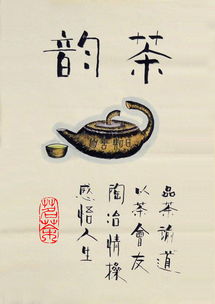 茶韵
品茶論道
以茶會友
陶冶情操
感悟人生